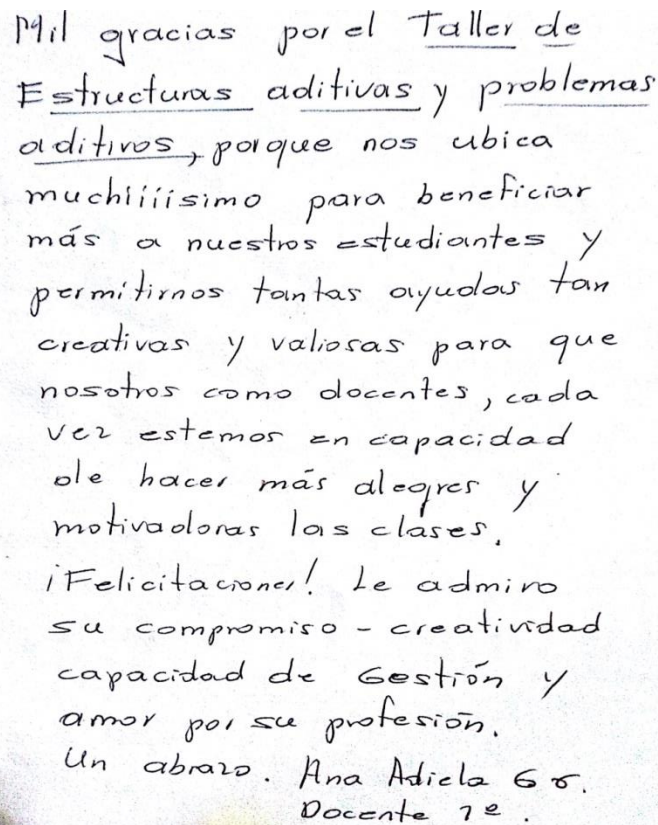 Mil gracias por el Taller de
Estructuras aditivas y problemas
aditivos, porque nos ubica
muchiiíísimo para beneficiar
más a nuestros estudiantes y
permitirnos tantas ayudas tan
creativas y valiosas para que
nosotros como docentes, cada
vez estemos en capacidad
de hacer más alegres y
motivadoras las clases.
¡Felicitaciones! Le admiro
su compromiso - creatividad
capacidad de Gestión y
amor por su profesión.
Un abrazo. Ana Adiela
Docente 1º.